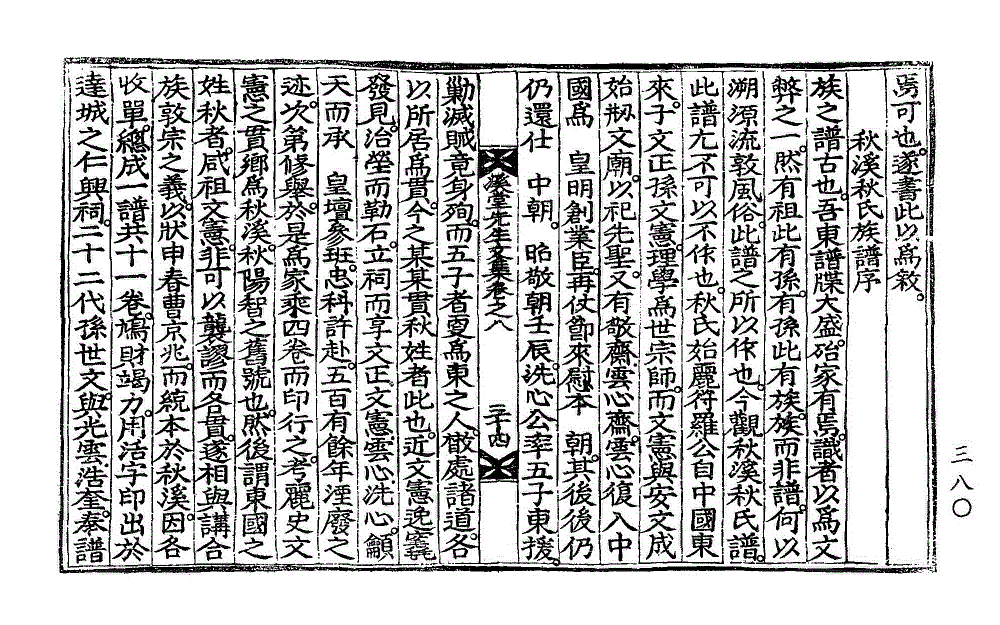 焉可也。遂書此以爲敘。
秋溪秋氏族譜序
族之譜古也。吾東譜牒大盛。殆家有焉。識者以爲文
弊之一。然有祖此有孫。有孫此有族。族而非譜。何以
溯源流敦風俗。此譜之所以作也。今觀秋溪秋氏譜。
此譜尤不可以不作也。秋氏始麗符羅公自中國東
來。子文正孫文憲。理學爲世宗師。而文憲與安文成
始刱文廟。以祀先聖。又有敬齋雲心齋。雲心復入中
國爲 皇明創業臣。再仗節來慰本 朝。其後後仍
仍還仕 中朝。昭敬朝壬辰。洗心公率五子東援。
溪堂先生文集卷之八 三十四
勦滅賊竟身殉。而五子者更爲東之人。散處諸道。各
以所居爲貫。今之某某貫秋姓者此也。近文憲逸竁
發見。治塋而勒石。立祠而享文正文憲雲心洗心。籲
天而承 皇壇參班。忠科許赴。五百有餘年湮廢之
迹。次第修舉。於是爲家乘四卷而印行之。考麗史文
憲之貫鄕爲秋溪。秋陽智之舊號也。然後謂東國之
姓秋者。咸祖文憲。非可以襲謬而各貫。遂相與講合
族敦宗之義。以狀申春曹京兆。而統本於秋溪。因各
收單。總成一譜共十一卷。鳩財竭力。用活字印出於
達城之仁興祠。二十二代孫世文。與光雲浩奎。奉譜
三八〇